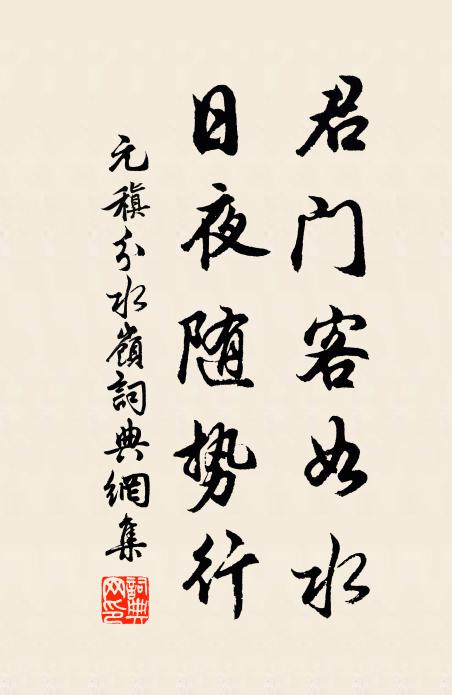 君门客如水
日夜随势行
元稹分水嶺詞典網集
詞典網印